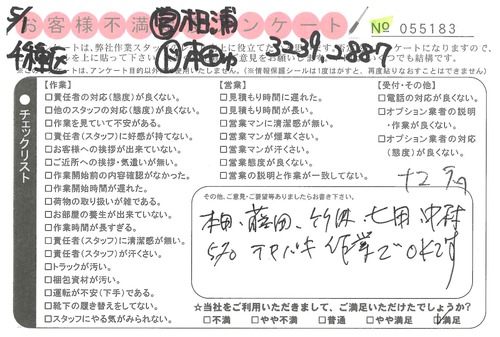 5/1
お客様不満 アンケート
営 相浦
№ 055183
3239-2887
ートは、弊社作業スタッフ
に役立て
【作業】
□責任者の対応(態度)が良くない。
□他のスタッフの対応(態度)が良くない。
□作業を見ていて不安がある。
□責任者(スタッフ)に好感が持てない。
□お客様への挨拶が出来ていない。
□ご近所への挨拶・気遣いが無い。
□作業開始前の内容確認がなかった。
□作業開始時間が遅れた。
□荷物の取り扱いが雑である。
□お部屋の養生が出来ていない。
□作業時間が長すぎる。
□責任者(スタッフ)に清潔感が無い。
□責任者(スタッフ)が汗くさい。
□トラックが汚い。
□梱包資材が汚い。
□運転が不安(下手)である。
□靴下の履き替えをしてない。
□スタッフにやる気がみられない。
【営業】
□見積もり時間に遅れた。
□見積もり時間が長い。
□営業マンに清潔感が無い。
□営業マンが煙草くさい。
□営業マンが汗くさい。
□営業態度が良くない。
□営業の説明と作業が一致してない。
【受付・その他】
□電話の対応が良くない。
□オプション業者の説明
・作業が良くない。
□オプション業者の対応
(態度)が良くない。
チェックリスト
その他、ご意見・ご要望等ありましたらお書き下さい。
本田、藤田、竹内、七田 中村
テキパキ作業でOKです
☆当社をご利用いただきまして、ご満足いただけたでしょうか?
□不満 □やや不満 □普通 □やや満足 □満足